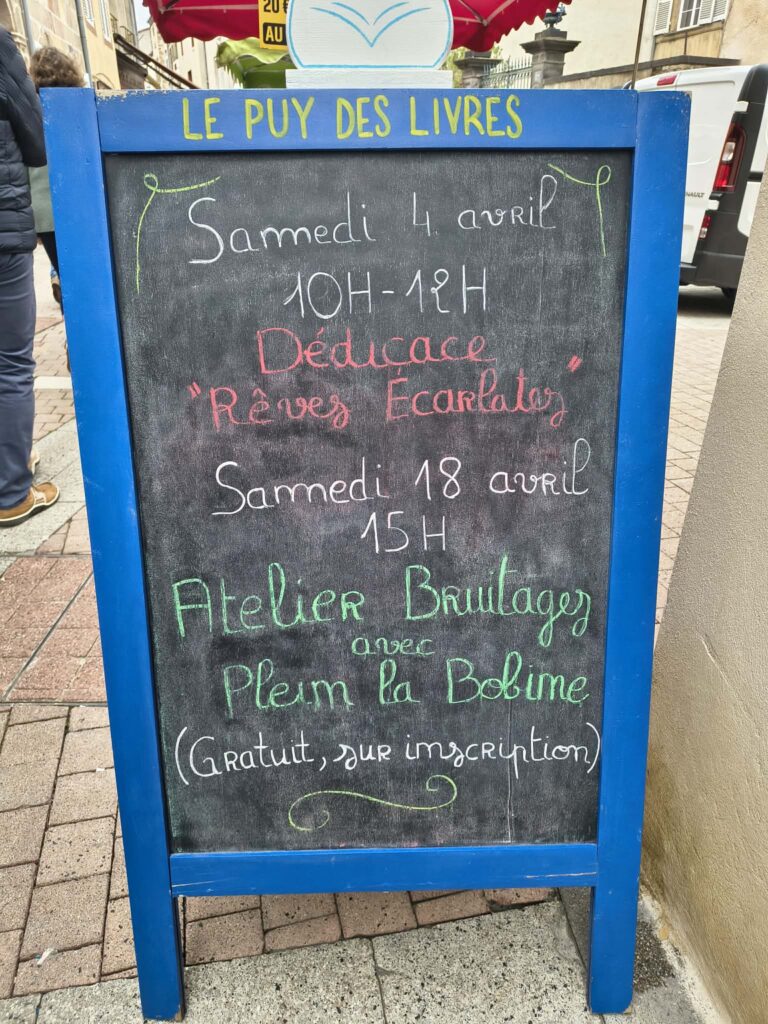 20€
AU
LE PUY DES LIVRES
Samedi 4 avril
10H-12H
Dédicace
"Rêves Écarlates"
Samedi 18 avril
15H
Atelier Bruitages
avec
Plein la Bobine
(Gratuit, sur inscription)
RENAULT